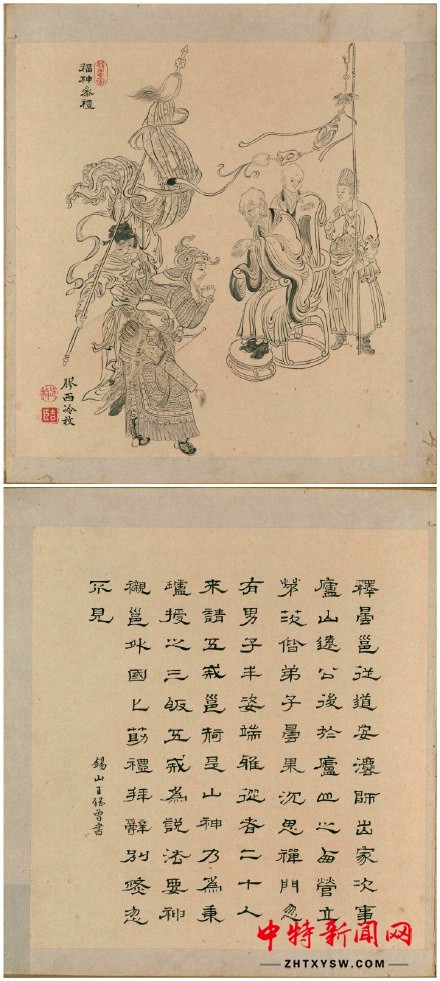 福神叅禮
膠西冷枚
釋曇邕從道安灋師出家次事
廬山遠公後於廬山之西營立
茅茨偕弟子曇果沉思禪門忽
有男子丰姿端雅從者二十人
來請五戒邕揣是山神乃為秉
爐授之三皈五戒為說法要神
襯邕外國匕筯禮拜辭別倏忽
不見
錫山王曾書
中特新闻网
ZHTXYSW.COM